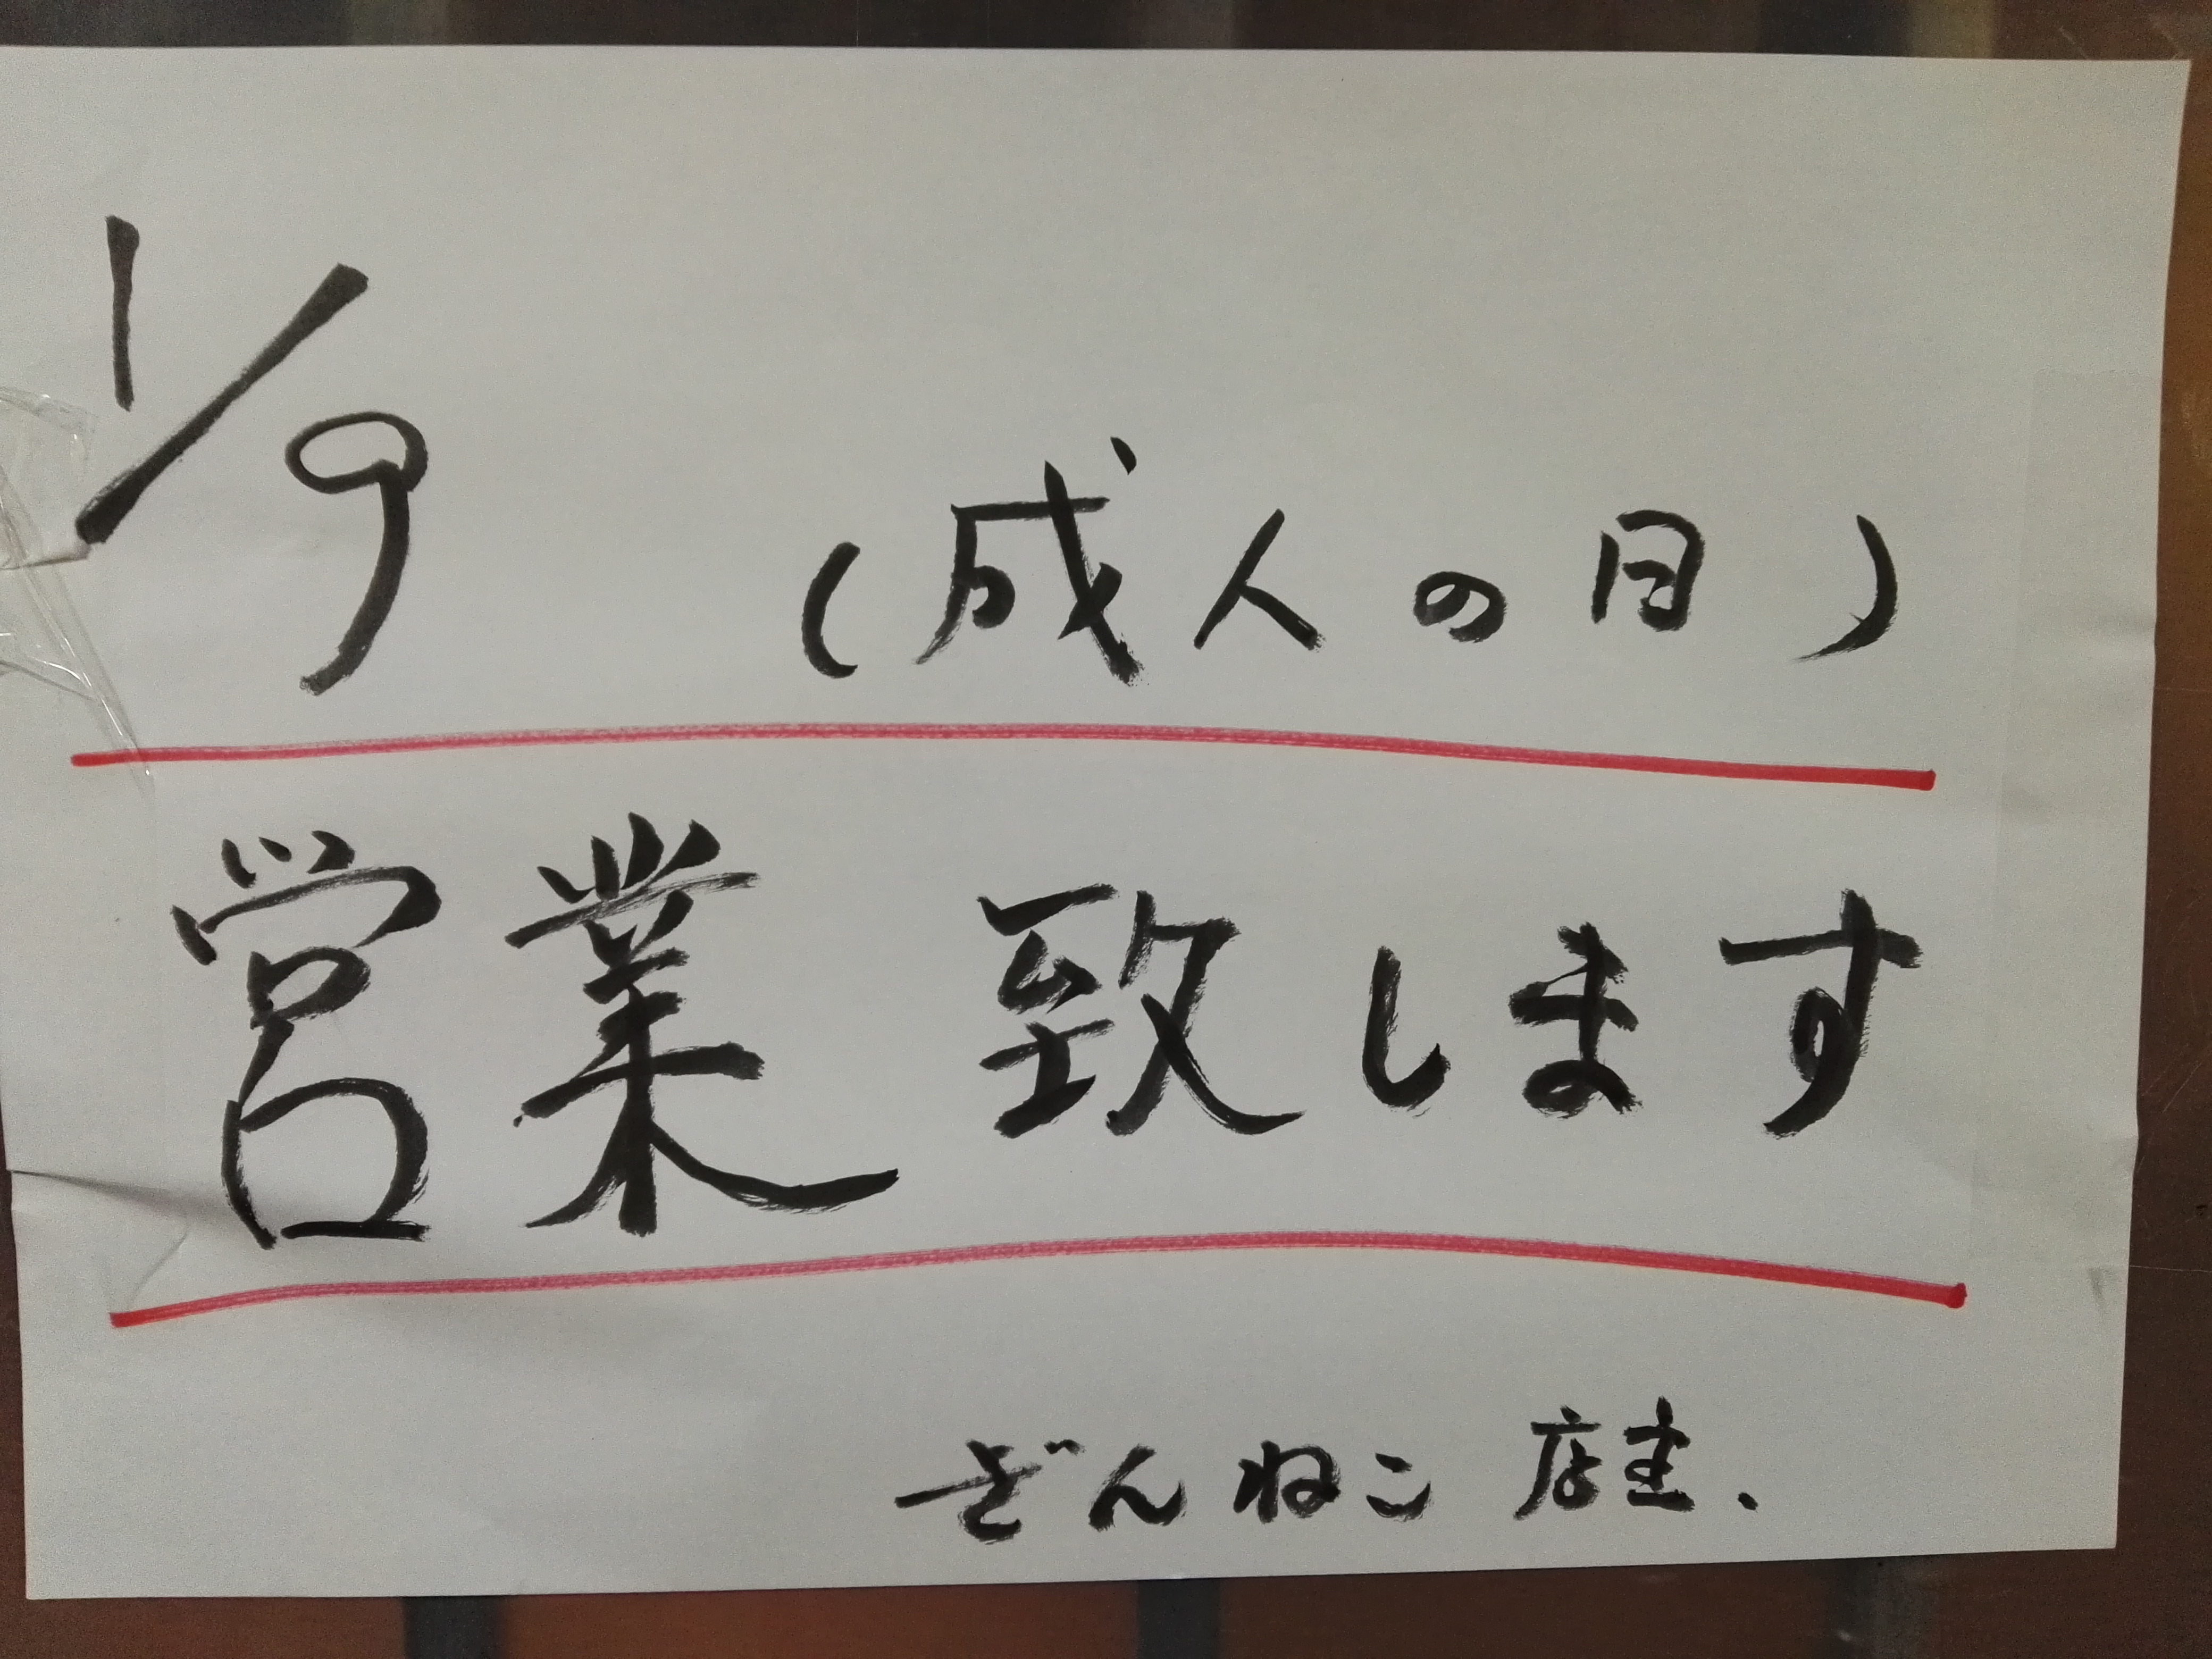 1/9 (成人の日)
営業 致します
ざんねこ 店主.